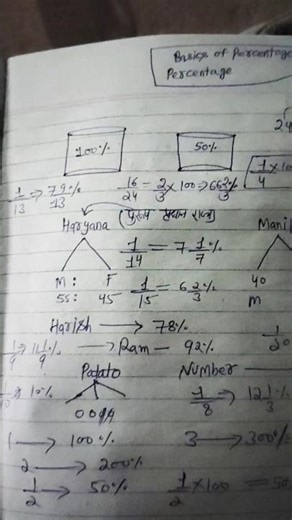 Basics of Percentage
Percentage
24
100%
50%
1/13 ⇒ 7 9/13 %
16/24 = 2/3 × 100 ⇒ 66 2/3 %
1/4 × 100
Haryana (पुरुष प्रधान राज्य)
1/14 = 7 1/7 %
M : F
55 : 45
1/15 = 6 2/3
40
M
Harish → 78%
1/9 ⇒ 11 1/9 % → Ram — 92%
1/20
Patato
NUMBER
⇒ 10%
1/8 ⇒ 12 1/3 %
1 → 100%
3 → 300%
2 → 200%
1/2 → 50%
1/2 × 100 = 50